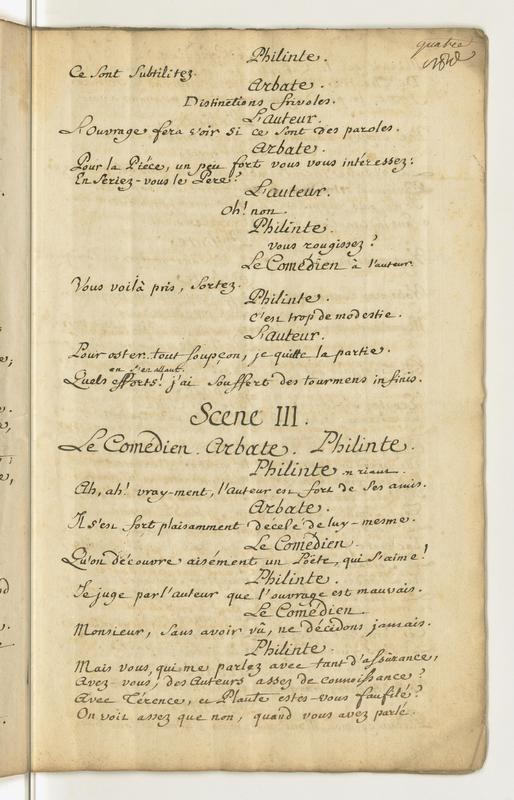 quatre
Philinte.
Ce sont subtilitez.
Arbate.
Distinctions frivoles.
L'auteur.
L'ouvrage fera voir si ce sont des paroles.
Arbate.
Pour la Piéce, un peu fort vous vous intéressez:
En seriez-vous le Pere?
L'auteur.
Oh! non.
Philinte.
vous rougissez?
Le Comédien à l'auteur.
Vous voilà pris, sortez.
Philinte.
c'est trop de modestie.
L'auteur.
Pour oster tout soupçon, je quitte la partie.
en s'en allant.
Quels efforts! j'ai souffert des tourmens infinis.
Scene III.
Le Comédien. Arbate. Philinte.
Philinte en riant.
Ah, ah! vray-ment, l'auteur est fort de ses amis.
Arbate.
Il s'est fort plaisamment décelé de luy-mesme.
Le Comédien.
Qu'on découvre aisément un Poëte, qui s'aime!
Philinte.
Je juge par l'auteur que l'ouvrage est mauvais.
Le Comédien.
Monsieur, sans avoir vû, ne décidons jamais.
Philinte.
Mais vous, qui me parlez avec tant d'assurance,
Avez-vous, des Auteurs assez de connoissance?
Avec Térence, et Plaute estes-vous faufilé?
On voit assez que non, quand vous avez parlé.